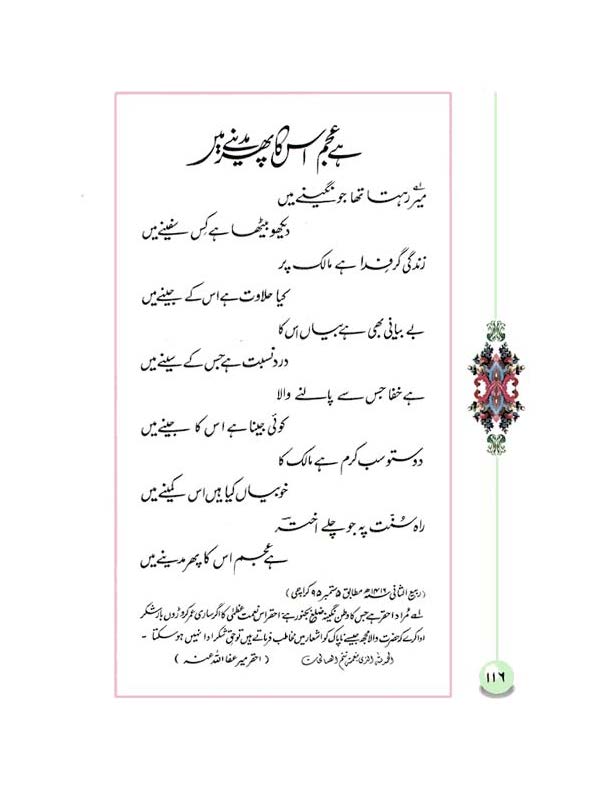 ہے عجم اس کا پھر مدینے میں
میرؔ رہتا تھا جو نگینے میں
دیکھو بیٹھا ہے کِس سفینے میں
زندگی گر فِدا ہے مالک پر
کیا حلاوت ہے اس کے جینے میں
بے بیانی بھی ہے بیاں اس کا
درد نسبت ہے جس کے سینے میں
ہے خفا جس سے پالنے والا
کوئی جینا ہے اس کا جینے میں
دوستو سب کرم ہے مالک کا
خوبیاں کیا ہیں اس کمینے میں
راہ سُنّت پہ جو چلے اخترؔ
ہے عجم اس کا پھر مدینے میں
(ربیع الثانی ۱۴۱۶ھ مطابق ۵ ستمبر ۹۵ کراچی)
لے مراد احقر ہے جس کا وطن نگینہ ضلع بجنور ہے؛ احقر اس نعمت عظمٰی کا اگر ساری عمر کروڑوں بار شکر
ادا کرے کہ حضرت والا مجھ جیسے ناپاک کو اشعار میں مخاطب فرماتے ہیں تو حق شکر ادا نہیں ہو سکتا ۔
الحمد للہ الذی بنعمتہ تتم الصالحات (احقر میر عفا اللہ عنہ)
۱۱۶